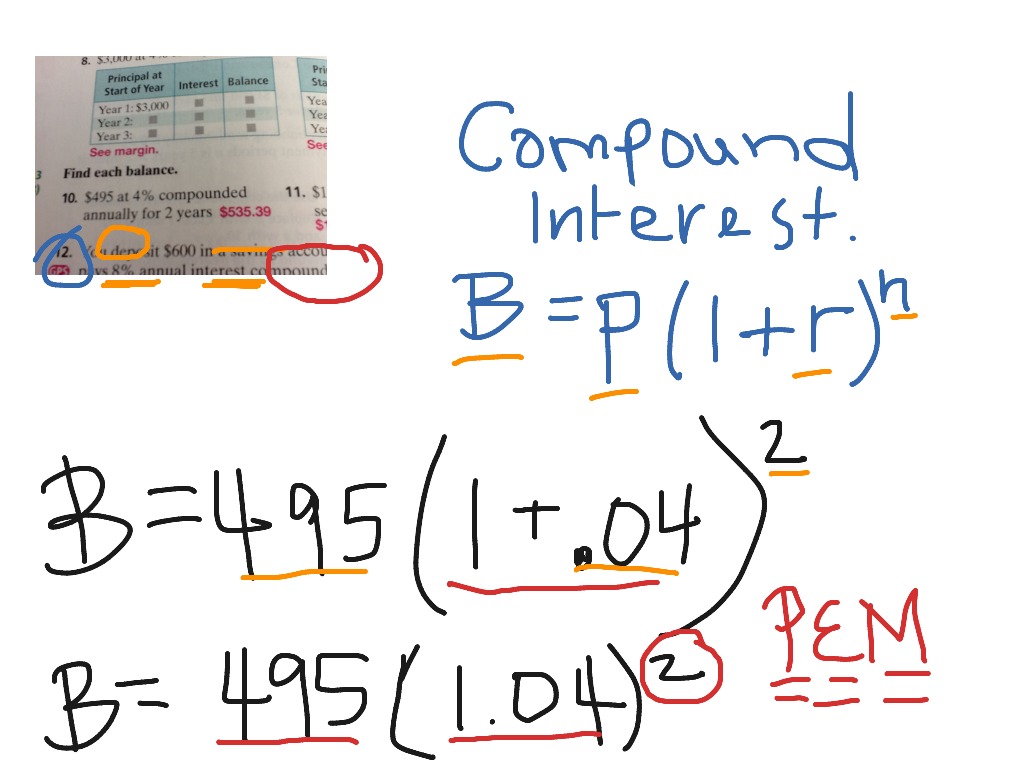 8. $3,000 at 4%
Principal at
Start of Year
Interest
Balance
Year 1: $3,000
Year 2:
Year 3:
See margin.
Pri
Sta
Yea
Yea
Yea
See
3
)
Find each balance.
10. $495 at 4% compounded
annually for 2 years $535.39
11. $1
se
$1
12. You deposit $600 in a savings accou
GPS pays 8% annual interest compound
Compound
Interest.
B = P(1+r)^n
B = 495(1+.04)^2
B = 495(1.04)^2
PEM